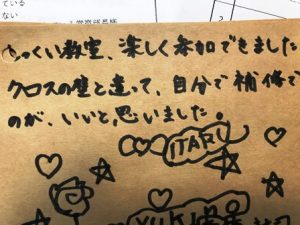 ている
ない
しっくい教室、楽しく参加できました
クロスの壁と違って、自分で補修で
のが、いいと思いました。
ITARU
YUKI